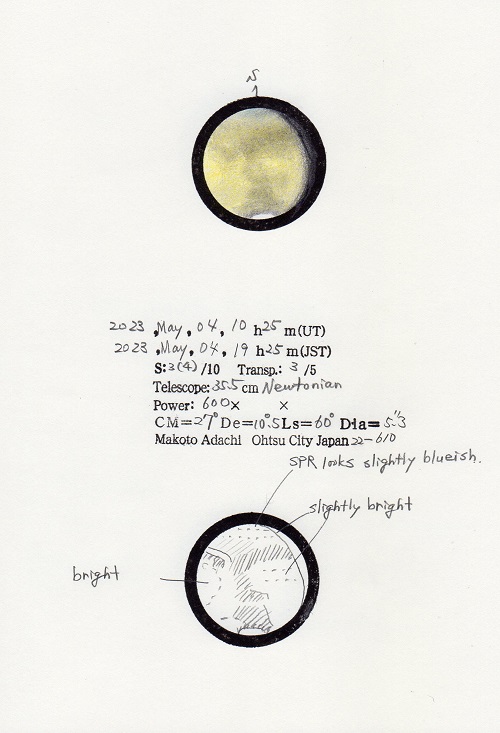 S
2023, May, 04, 10 h 25 m(UT)
2023, May, 04, 19 h 25 m(JST)
S:3(4)/10 Transp.: 3 /5
Telescope: 35.5 cm Newtonian
Power: 600× ×
CM=27° De=10°.5 Ls=60° Dia=5".3
Makoto Adachi Ohtsu City Japan 22-610
SPR looks slightly blueish.
slightly bright
bright